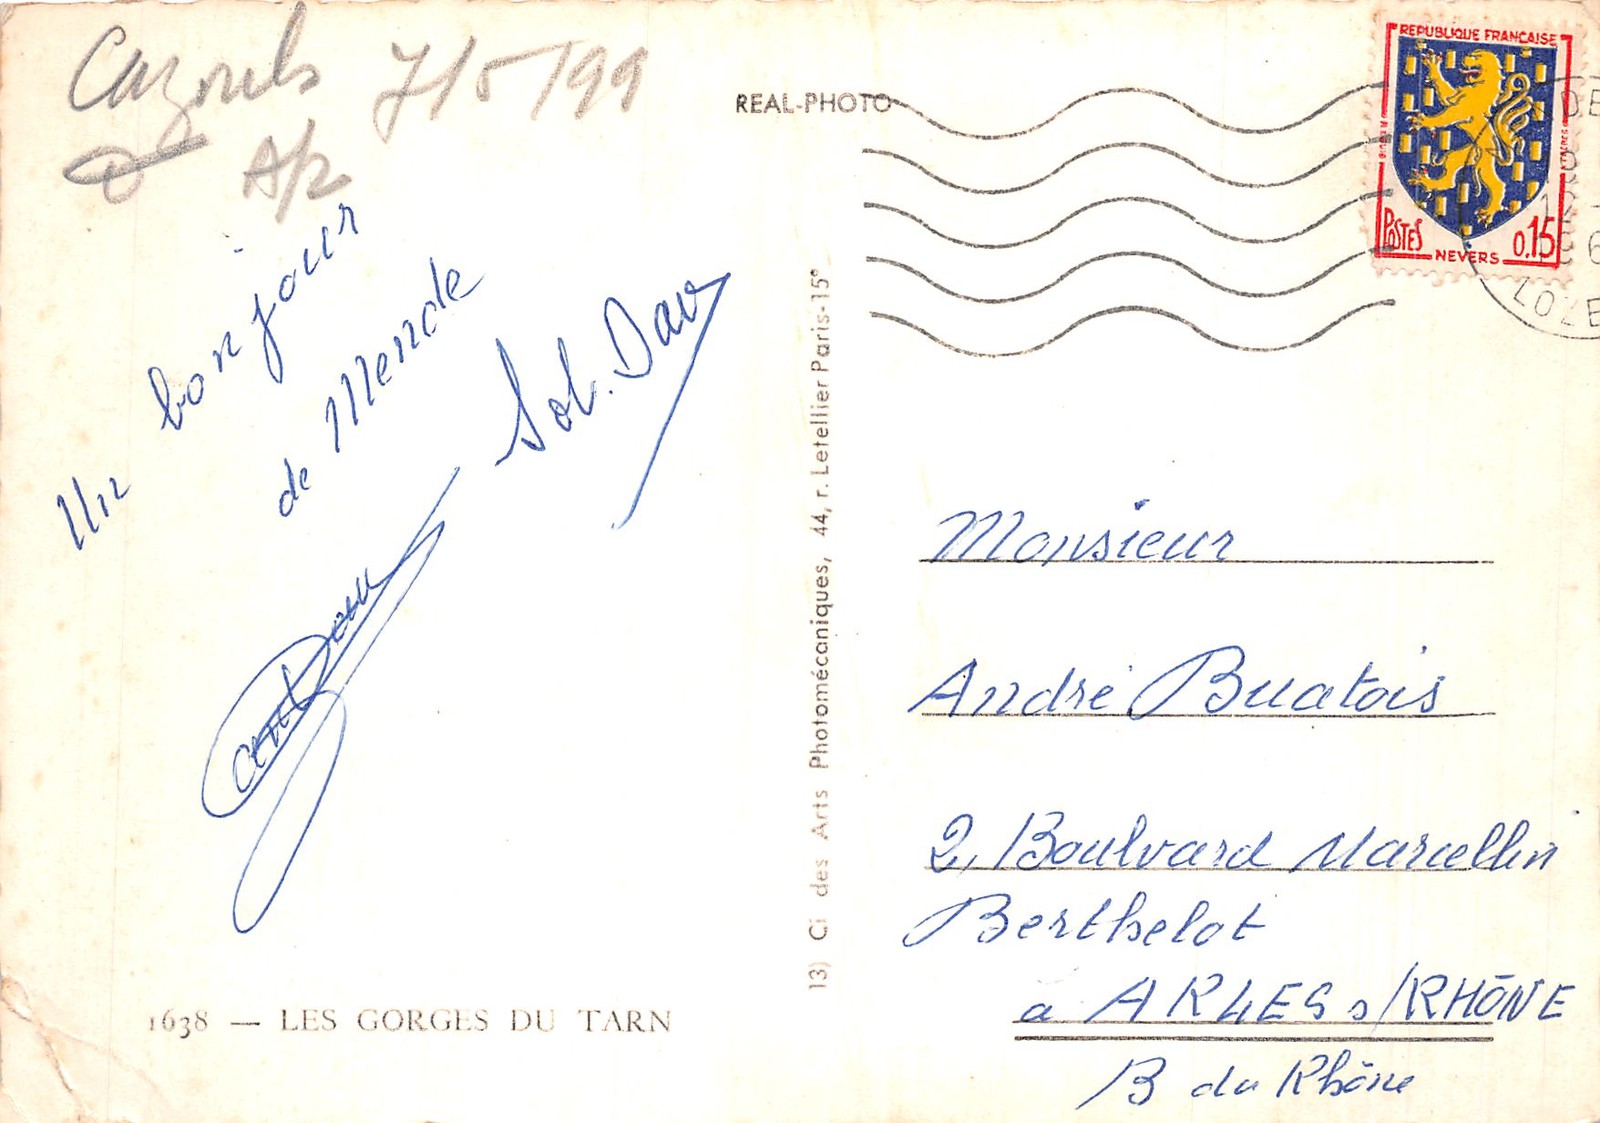 Cazouls 7/5/99
A/2
REAL-PHOTO
REPUBLIQUE FRANÇAISE
POSTES
0.15
NEVERS
DE
LOZE
Un bonjour
de Mende
13) Ci des Arts Photomécaniques, 44, r. Letellier Paris-15°
Monsieur
André Buatois
2, Boulvard Marcellin
Berthelot
a ARLES s/RHÔNE
B du Rhône
1638 — LES GORGES DU TARN